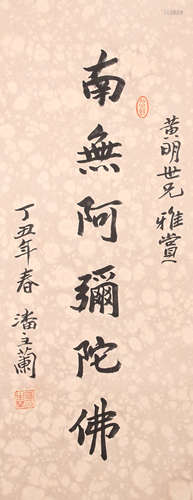 黄明世兄雅賞
南無阿彌陀佛
丁丑年春 潘主蘭